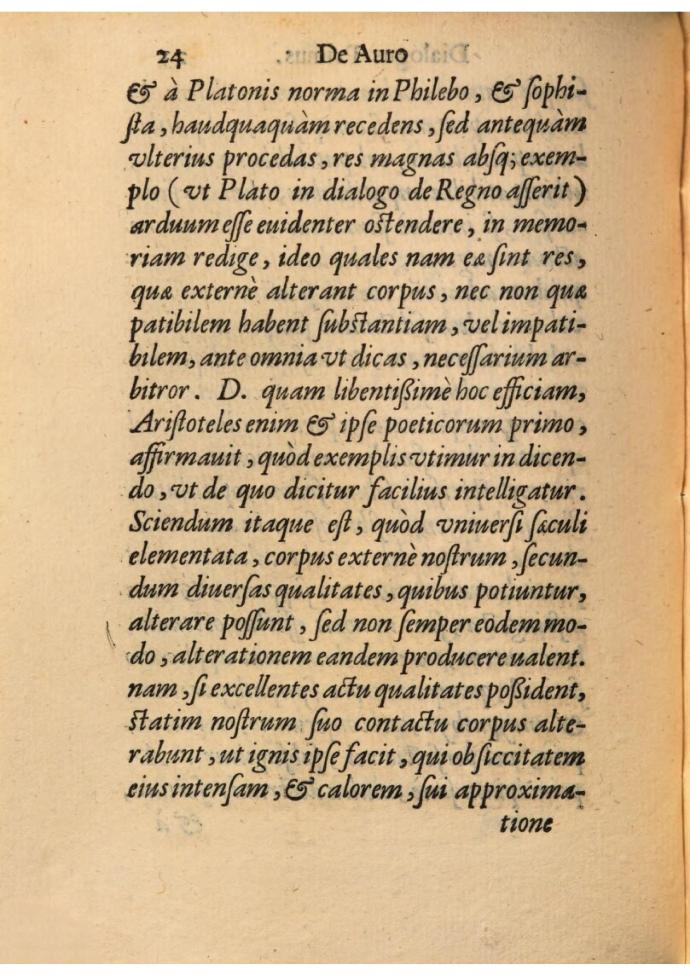 24 De Auro
& à Platonis norma in Philebo, & ſophi-
ſta, haudquaquàm recedens, ſed antequàm
vlterius procedas, res magnas abſq; exem-
plo (vt Plato in dialogo de Regno aſſerit)
arduum eſſe euidenter oſtendere, in memo-
riam redige, ideo quales nam eæ ſint res,
quæ externè alterant corpus, nec non quæ
patibilem habent ſubſtantiam, vel impati-
bilem, ante omnia vt dicas, neceſſarium ar-
bitror. D. quam libentißimè hoc efficiam,
Ariſtoteles enim & ipſe poeticorum primo,
affirmauit, quòd exemplis vtimur in dicen-
do, vt de quo dicitur facilius intelligatur.
Sciendum itaque eſt, quòd vniuerſi ſæculi
elementata, corpus externè noſtrum, ſecun-
dum diuerſas qualitates, quibus potiuntur,
alterare poſſunt, ſed non ſemper eodem mo-
do, alterationem eandem producere ualent.
nam, ſi excellentes actu qualitates poßident,
ſtatim noſtrum ſuo contactu corpus alte-
rabunt, ut ignis ipſe facit, qui ob ſiccitatem
eius intenſam, & calorem, ſui approxima-
tione